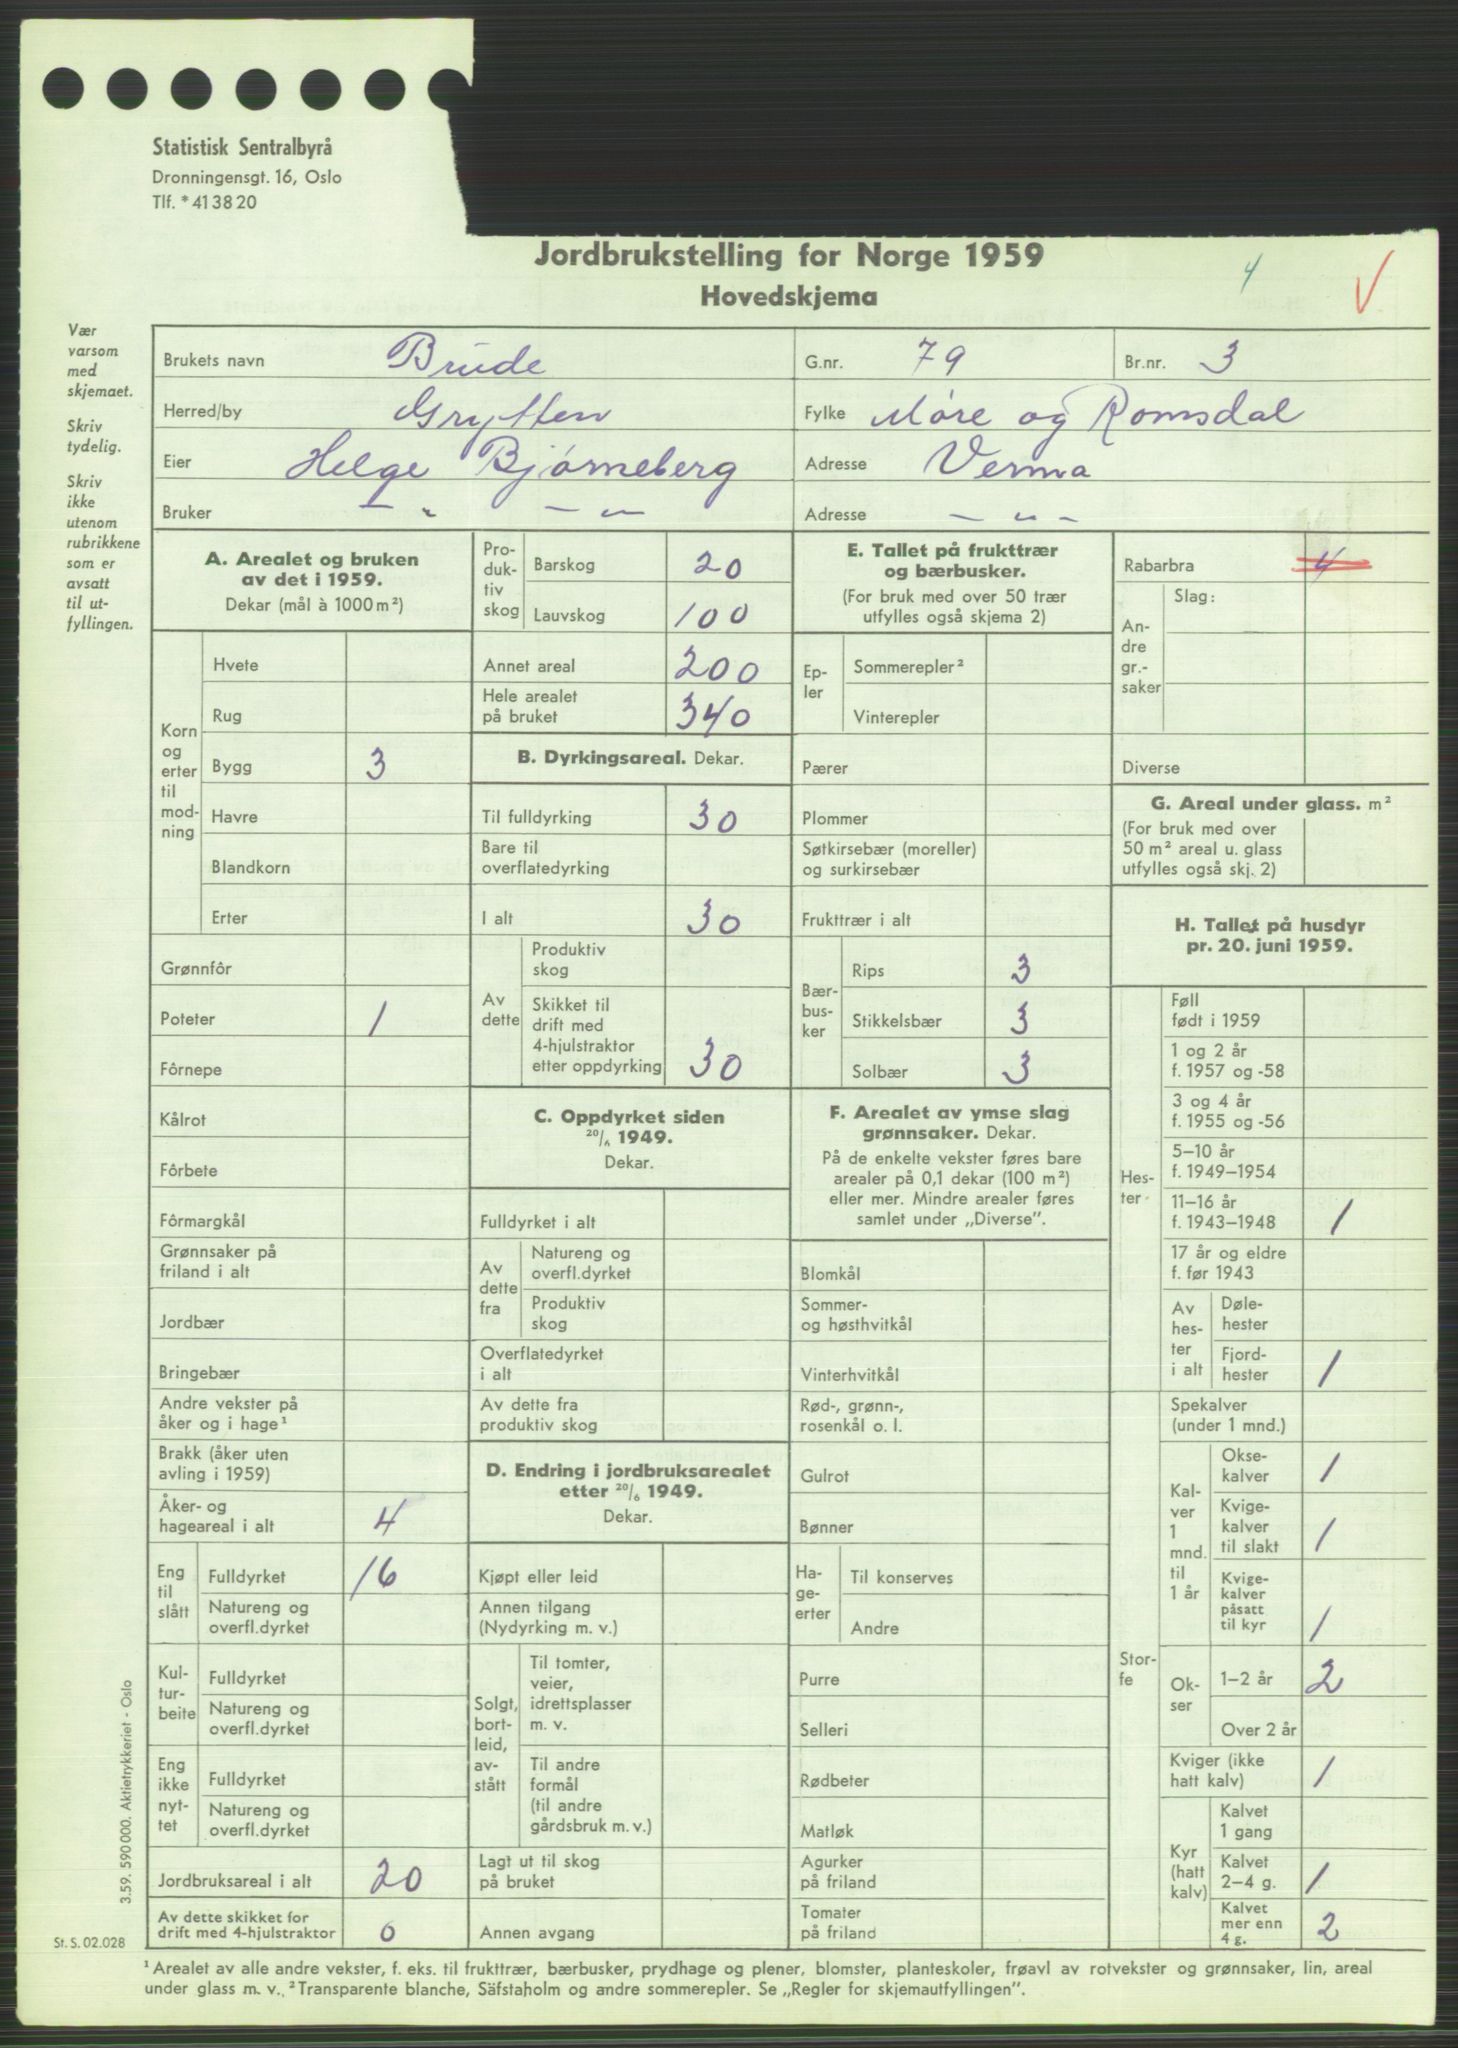 Statistisk Sentralbyrå
Dronningensgt. 16, Oslo
Tlf. * 41 38 20
Jordbrukstelling for Norge 1959
Hovedskjema
4
Vær
varsom
med
skjemaet.
Skriv
tydelig.
Skriv
ikke
utenom
rubrikkene
som er
avsatt
til ut-
fyllingen.
Brukets navn Brude G.nr. 79 Br.nr. 3
Herred/by Grytten Fylke Møre og Romsdal
Eier Helge Bjørneberg Adresse Verma
Bruker — " — " — Adresse — " —
A. Arealet og bruken
av det i 1959.
Dekar (mål à 1000 m²)
Korn
og
erter
til
mod-
ning
Hvete
Rug
Bygg 3
Havre
Blandkorn
Erter
Grønnfôr
Poteter 1
Fôrnepe
Kålrot
Fôrbete
Fôrmargkål
Grønnsaker på
friland i alt
Jordbær
Bringebær
Andre vekster på
åker og i hage¹
Brakk (åker uten
avling i 1959)
Åker- og
hageareal i alt 4
Eng
til
slått
Fulldyrket 16
Natureng og
overfl.dyrket
Kul-
tur-
beite
Fulldyrket
Natureng og
overfl.dyrket
Eng
ikke
nyt-
tet
Fulldyrket
Natureng og
overfl.dyrket
Jordbruksareal i alt 20
Av dette skikket for
drift med 4-hjulstraktor 0
Pro-
duk-
tiv
skog
Barskog 20
Lauvskog 100
Annet areal 200
Hele arealet
på bruket 340
B. Dyrkingsareal. Dekar.
Til fulldyrking 30
Bare til
overflatedyrking
I alt 30
Av
dette
Produktiv
skog
Skikket til
drift med
4-hjulstraktor
etter oppdyrking 30
C. Oppdyrket siden
20/6 1949.
Dekar.
Fulldyrket i alt
Av
dette
fra
Natureng og
overfl.dyrket
Produktiv
skog
Overflatedyrket
i alt
Av dette fra
produktiv skog
D. Endring i jordbruksarealet
etter 20/6 1949.
Dekar.
Kjøpt eller leid
Annen tilgang
(Nydyrking m. v.)
Solgt,
bort-
leid,
av-
stått
Til tomter,
veier,
idrettsplasser
m. v.
Til andre
formål
(til andre
gårdsbruk m. v.)
Lagt ut til skog
på bruket
Annen avgang
E. Tallet på frukttrær
og bærbusker.
(For bruk med over 50 trær
utfylles også skjema 2)
Ep-
ler
Sommerepler²
Vinterepler
Pærer
Plommer
Søtkirsebær (moreller)
og surkirsebær
Frukttrær i alt
Bær-
bus-
ker
Rips 3
Stikkelsbær 3
Solbær 3
F. Arealet av ymse slag
grønnsaker. Dekar.
På de enkelte vekster føres bare
arealer på 0,1 dekar (100 m²)
eller mer. Mindre arealer føres
samlet under „Diverse”.
Blomkål
Sommer-
og høsthvitkål
Vinterhvitkål
Rød-, grønn-,
rosenkål o. l.
Gulrot
Bønner
Ha-
ge-
erter
Til konserves
Andre
Purre
Selleri
Rødbeter
Matløk
Agurker
på friland
Tomater
på friland
Rabarbra 4
An-
dre
gr.-
saker
Slag:
Diverse
G. Areal under glass. m²
(For bruk med over
50 m² areal u. glass
utfylles også skj. 2)
H. Tallet på husdyr
pr. 20. juni 1959.
Hes-
ter
Føll
født i 1959
1 og 2 år
f. 1957 og -58
3 og 4 år
f. 1955 og -56
5–10 år
f. 1949–1954
11–16 år
f. 1943–1948 1
17 år og eldre
f. før 1943
Av
hes-
ter
i alt
Døle-
hester
Fjord-
hester 1
Stor-
fe
Spekalver
(under 1 mnd.)
Kal-
ver
1
mnd.
til
1 år
Okse-
kalver 1
Kvige-
kalver
til slakt 1
Kvige-
kalver
påsatt
til kyr 1
Ok-
ser
1–2 år 2
Over 2 år
Kviger (ikke
hatt kalv) 1
Kyr
(hatt
kalv)
Kalvet
1 gang
Kalvet
2–4 g. 1
Kalvet
mer enn
4 g. 2
3.59. 590 000. Aktietrykkeriet - Oslo
St. S. 02.028
¹ Arealet av alle andre vekster, f. eks. til frukttrær, bærbusker, prydhage og plener, blomster, planteskoler, frøavl av rotvekster og grønnsaker, lin, areal
under glass m. v. ² Transparente blanche, Säfstaholm og andre sommerepler. Se „Regler for skjemautfyllingen”.